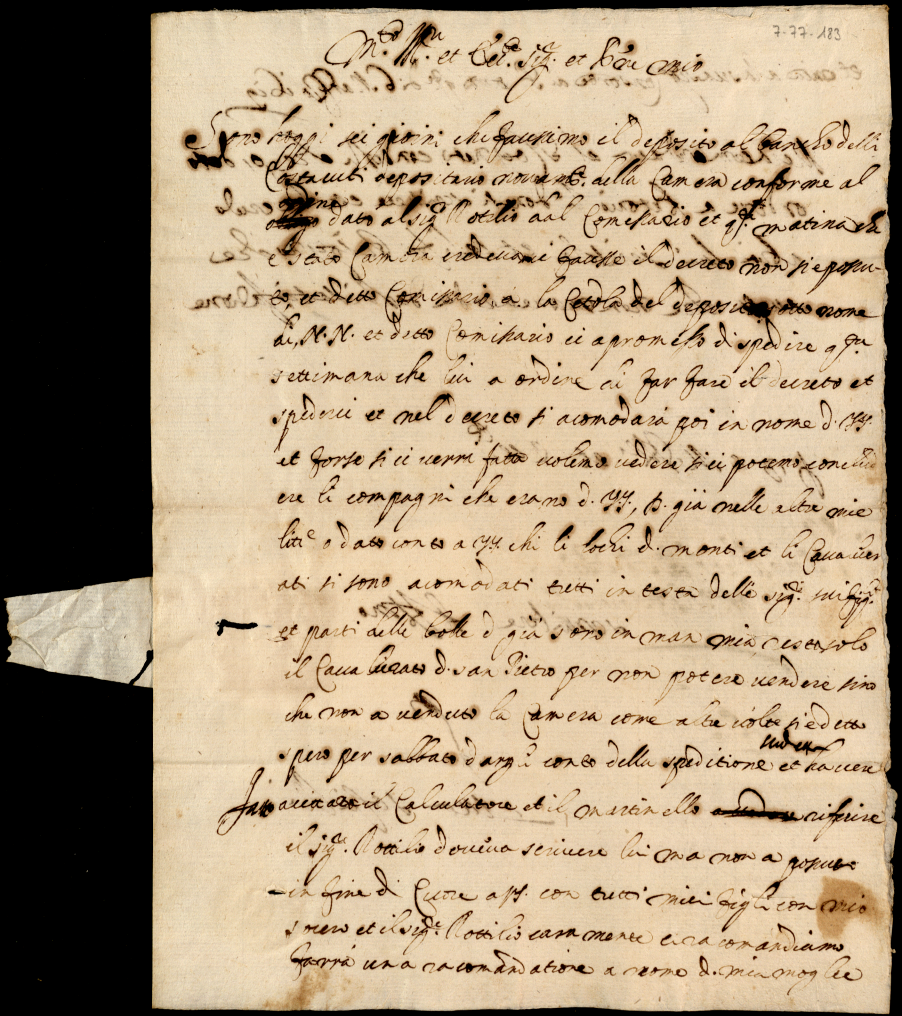 7-77-183
M.to Ill.re et Ecc.te Sig.r et P.rone mio
Sono hoggi sei giorni che faessimo il deposito al bancho delli
Costacuti depositario novam.te della Camera conforme al
ordine dato al sig.r Rottilio dal Comissario et q.ta matina ch
e stato Camera credevamo facesse il decreto non si e possu-
to, et detto Comissario a la Cedola del deposito sotto nome
di, N. N. et detto Comissario ci a promesso di spedire q.sta
settimana che lui a ordine di far fare il decreto et
spedirci et nel decreto si acomodarà poi in nome d. VS.
et forse si ci verrà fatta volemo vedere si ci potemo conced
ere li compagni che erano d. VS, D. già nelle altre mie
lit.e o dato conto a VS. chi li lochi d. monti et li Cavalier
ati si sono acomodati tutti in testa delli sig.ri sui fig.li
et parti delle bolle d già sono in man mia resta solo
il Cavalierato d. san Pietro per non potere vendere sino
che non a venduto la Camera come altre volte si è detto
spero per sabbato dargli conto della speditione et havere
veduto
fatto il Calculatore et il martinello riferire
il sig.r Rottilio doveva scrivere lui ma non a possuto
in fine di Core a VS. con tutti miei figli con mio
socero et il sig.r Rottilio caramente ci racomandiamo
farrà una racomandatione a nome d. mia moglie